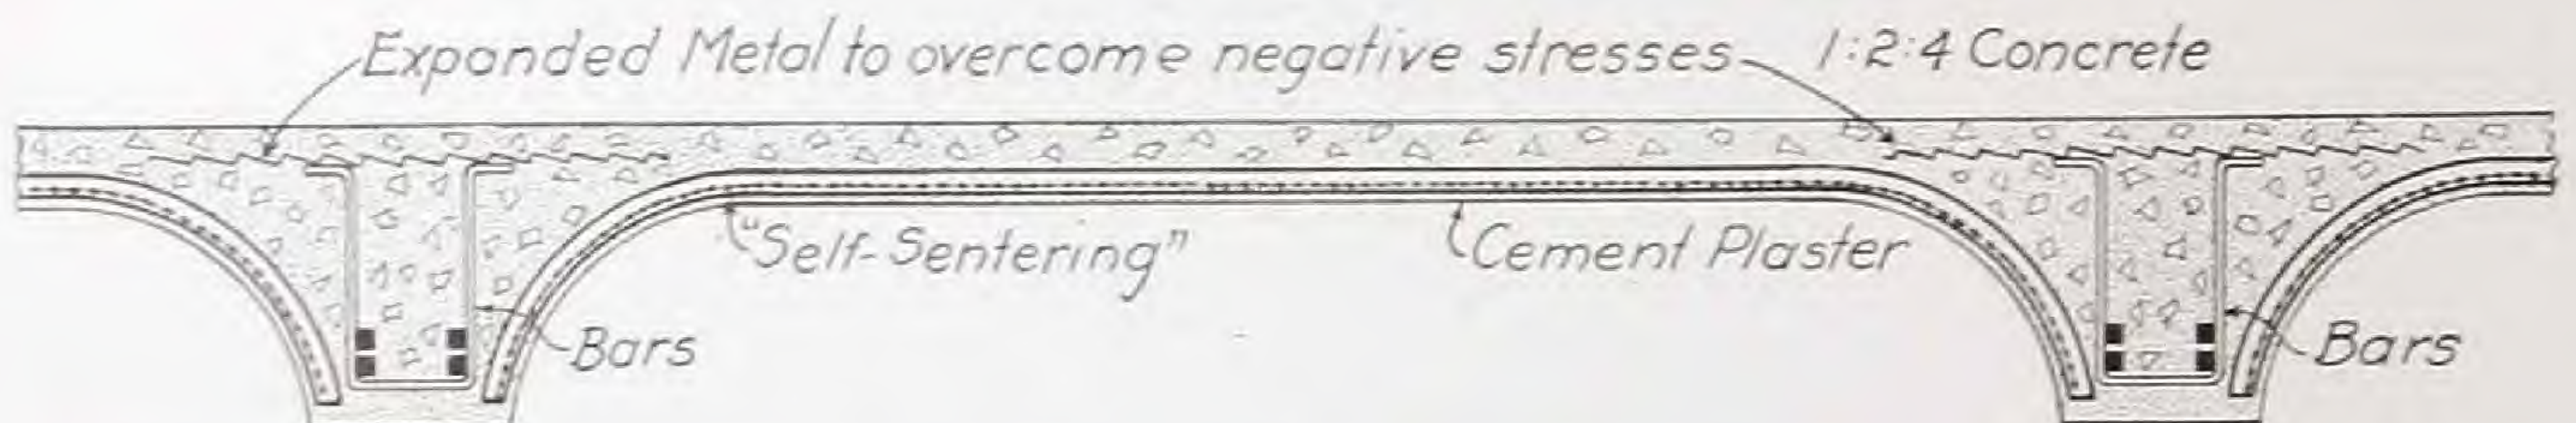 Expanded Metal to overcome negative stresses
1:2:4 Concrete
"Self-Sentering"
Cement Plaster
Bars
Bars